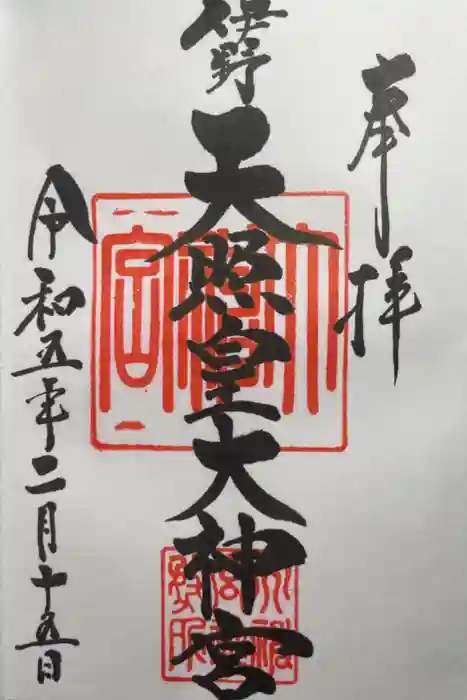 奉拝
伊野
天照皇大神宮
令和五年二月十五日
大神宮